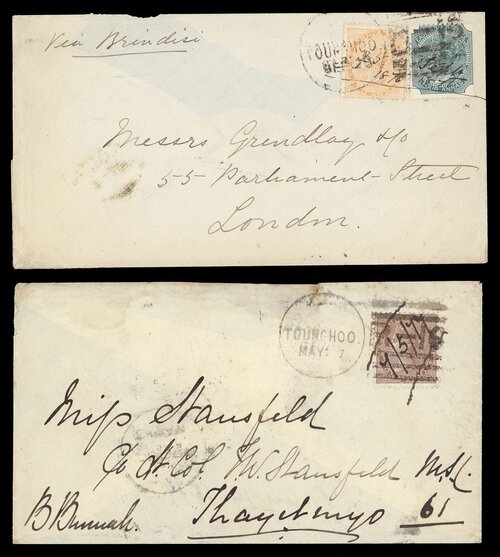 Via Brindisi
TOUNGHOO
SEP 29
Messrs Grendlay & Co
55 Parliament Street
London.
TOUNGHOO.
MAY 7
7/5/7
Miss Stansfeld
Co Lt Col. W. Stansfeld M.S.C.
B. Burmah. Thayetmyo 61